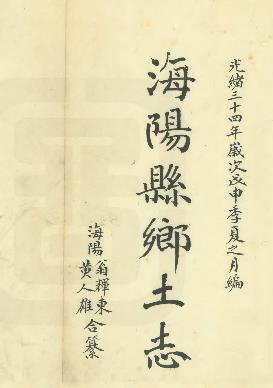 光緒三十四年歲次戊申季夏之月編
海陽縣鄉土志
海陽翁輝東
黃人雄合纂